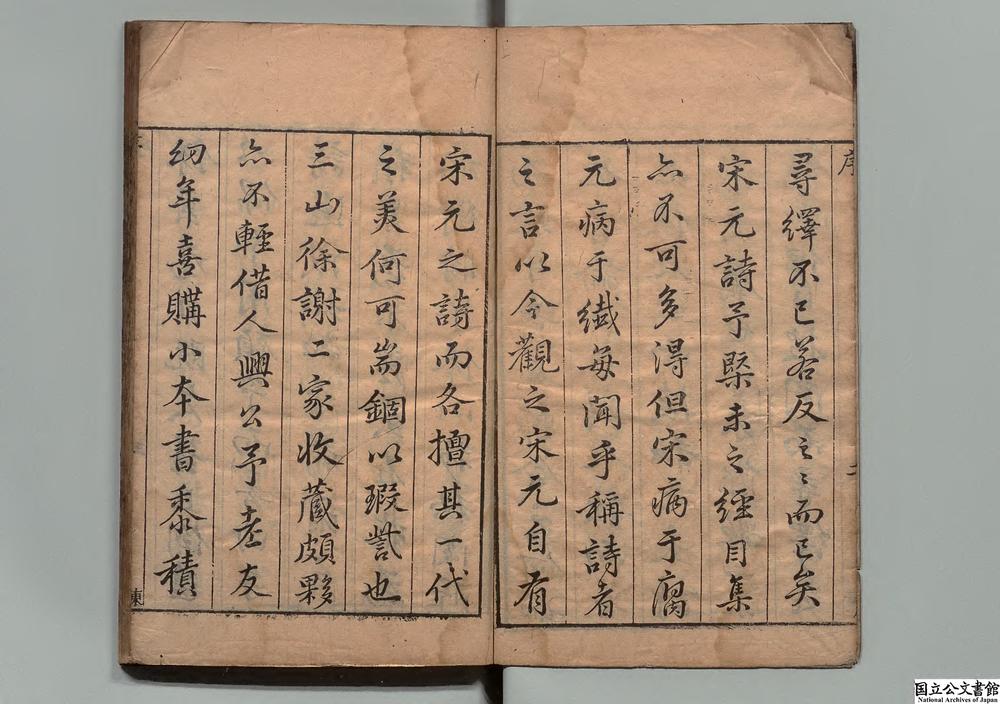 序
尋繹不已若反之〻而已矣
宋元詩予槩未之經目集
亦不可多得但宋病于腐
元病于纎每聞乎稱詩者
之言以今觀之宋元自有
二
宋元之詩而各擅其一代
之美何可耑錮以瑕訾也
三山徐謝二家收藏頗夥
亦不輕借人興公予老友
幼年喜購小本書黍積
東
国立公文書館
National Archives of Japan